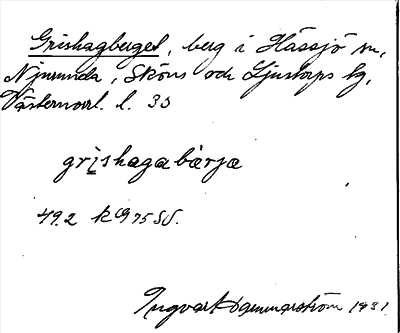 Grishagberget, berg i Hässjö sn,
Njurunda, Sköns och Ljustorps tg,
Västernorrl. l. 33
grishagabàrja
49.2
Ingvar Hammarström 1931